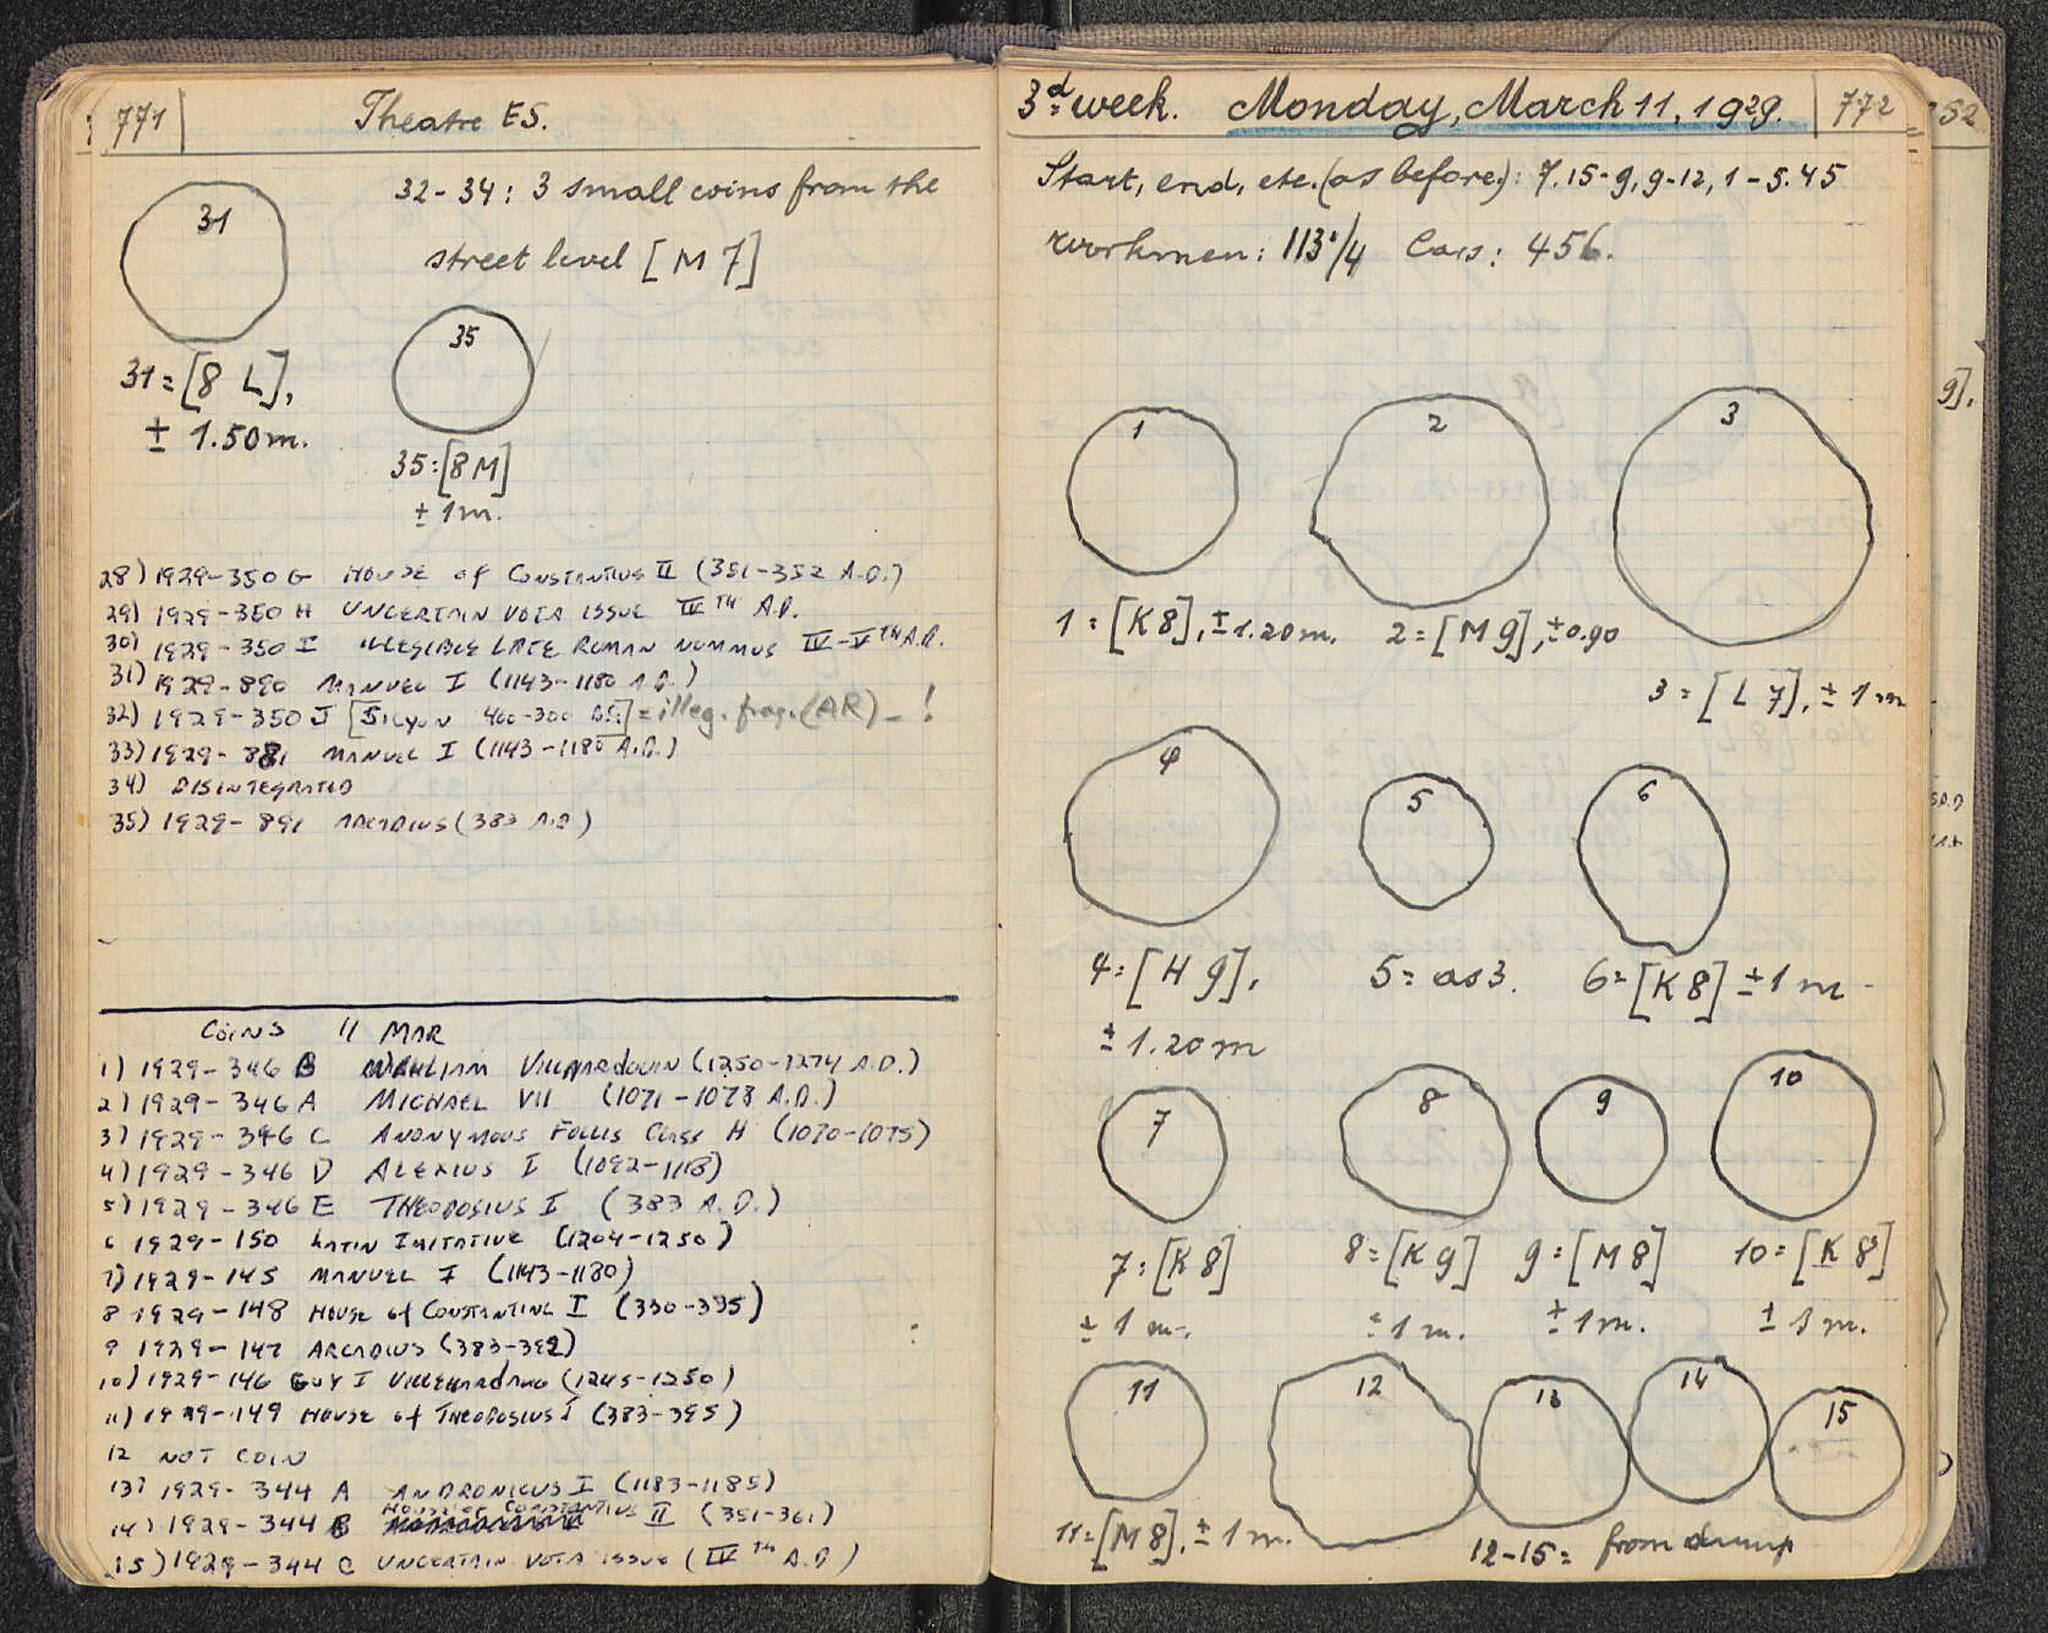 771
Theatre ES.
31
32-34: 3 small coins from the
street level [M 7]
35
31=[8 L],
± 1.50m.
35=[8M]
± 1m.
28) 1929-350 G HOUSE of CONSTANTIUS II (351-352 A.D.)
29) 1929-350 H UNCERTAIN VOTA ISSUE IV TH A.D.
30) 1929-350 I ILLEGIBLE LATE ROMAN NUMMUS IV-V TH A.D.
31) 1929-890 MANUEL I (1143-1180 A.D.)
32) 1929-350 J [SICYON 400-300 BC] = illeg. frag. (AR) - !
33) 1929-881 MANUEL I (1143-1180 A.D.)
34) DISINTEGRATED
35) 1929-891 ARCADIUS (383 A.D.)
COINS 11 MAR
1) 1929-346 B WILLIAM VILLHARDOUIN (1250-1274 A.D.)
2) 1929-346 A MICHAEL VII (1071-1078 A.D.)
3) 1929-346 C ANONYMOUS FOLLIS CLASS H (1070-1075)
4) 1929-346 D ALEXIUS I (1092-1118)
5) 1929-346 E THEODOSIUS I (383 A.D.)
6 1929-150 LATIN IMITATIVE (1204-1250)
7) 1929-145 MANUEL I (1143-1180)
8 1929-148 HOUSE of CONSTANTINE I (330-335)
9 1929-147 ARCADIUS (383-392)
10) 1929-146 GUY I (1245-1250)
11) 1929-149 HOUSE of THEODOSIUS I (383-395)
12 NOT COIN
13) 1929-344 A ANDRONICUS I (1183-1185)
14) 1929-344 B HOUSE OF CONSTANTIUS II (351-361)
15) 1929-344 C UNCERTAIN VOTA ISSUE (IV TH A.D)
3d week. Monday, March 11, 1929. 772
Start, end, etc. (as before): 7.15-9, 9-12, 1-5.45
workmen: 113 1/4 Cars: 456.
1 2 3
1=[K8], ±1.20m. 2=[M 9], ±0.90
3=[L 7], ± 1 m
4 5 6
4=[H 9], 5= as 3. 6=[K8] ±1 m
± 1.20m
7 8 9 10
7=[K8] 8=[K 9] 9=[M 8] 10=[K 8]
± 1 m. ± 1 m. ± 1m. ± 1 m.
11 12 13 14 15
11=[M 8], ± 1 m.
12-15= from dump
52
9],